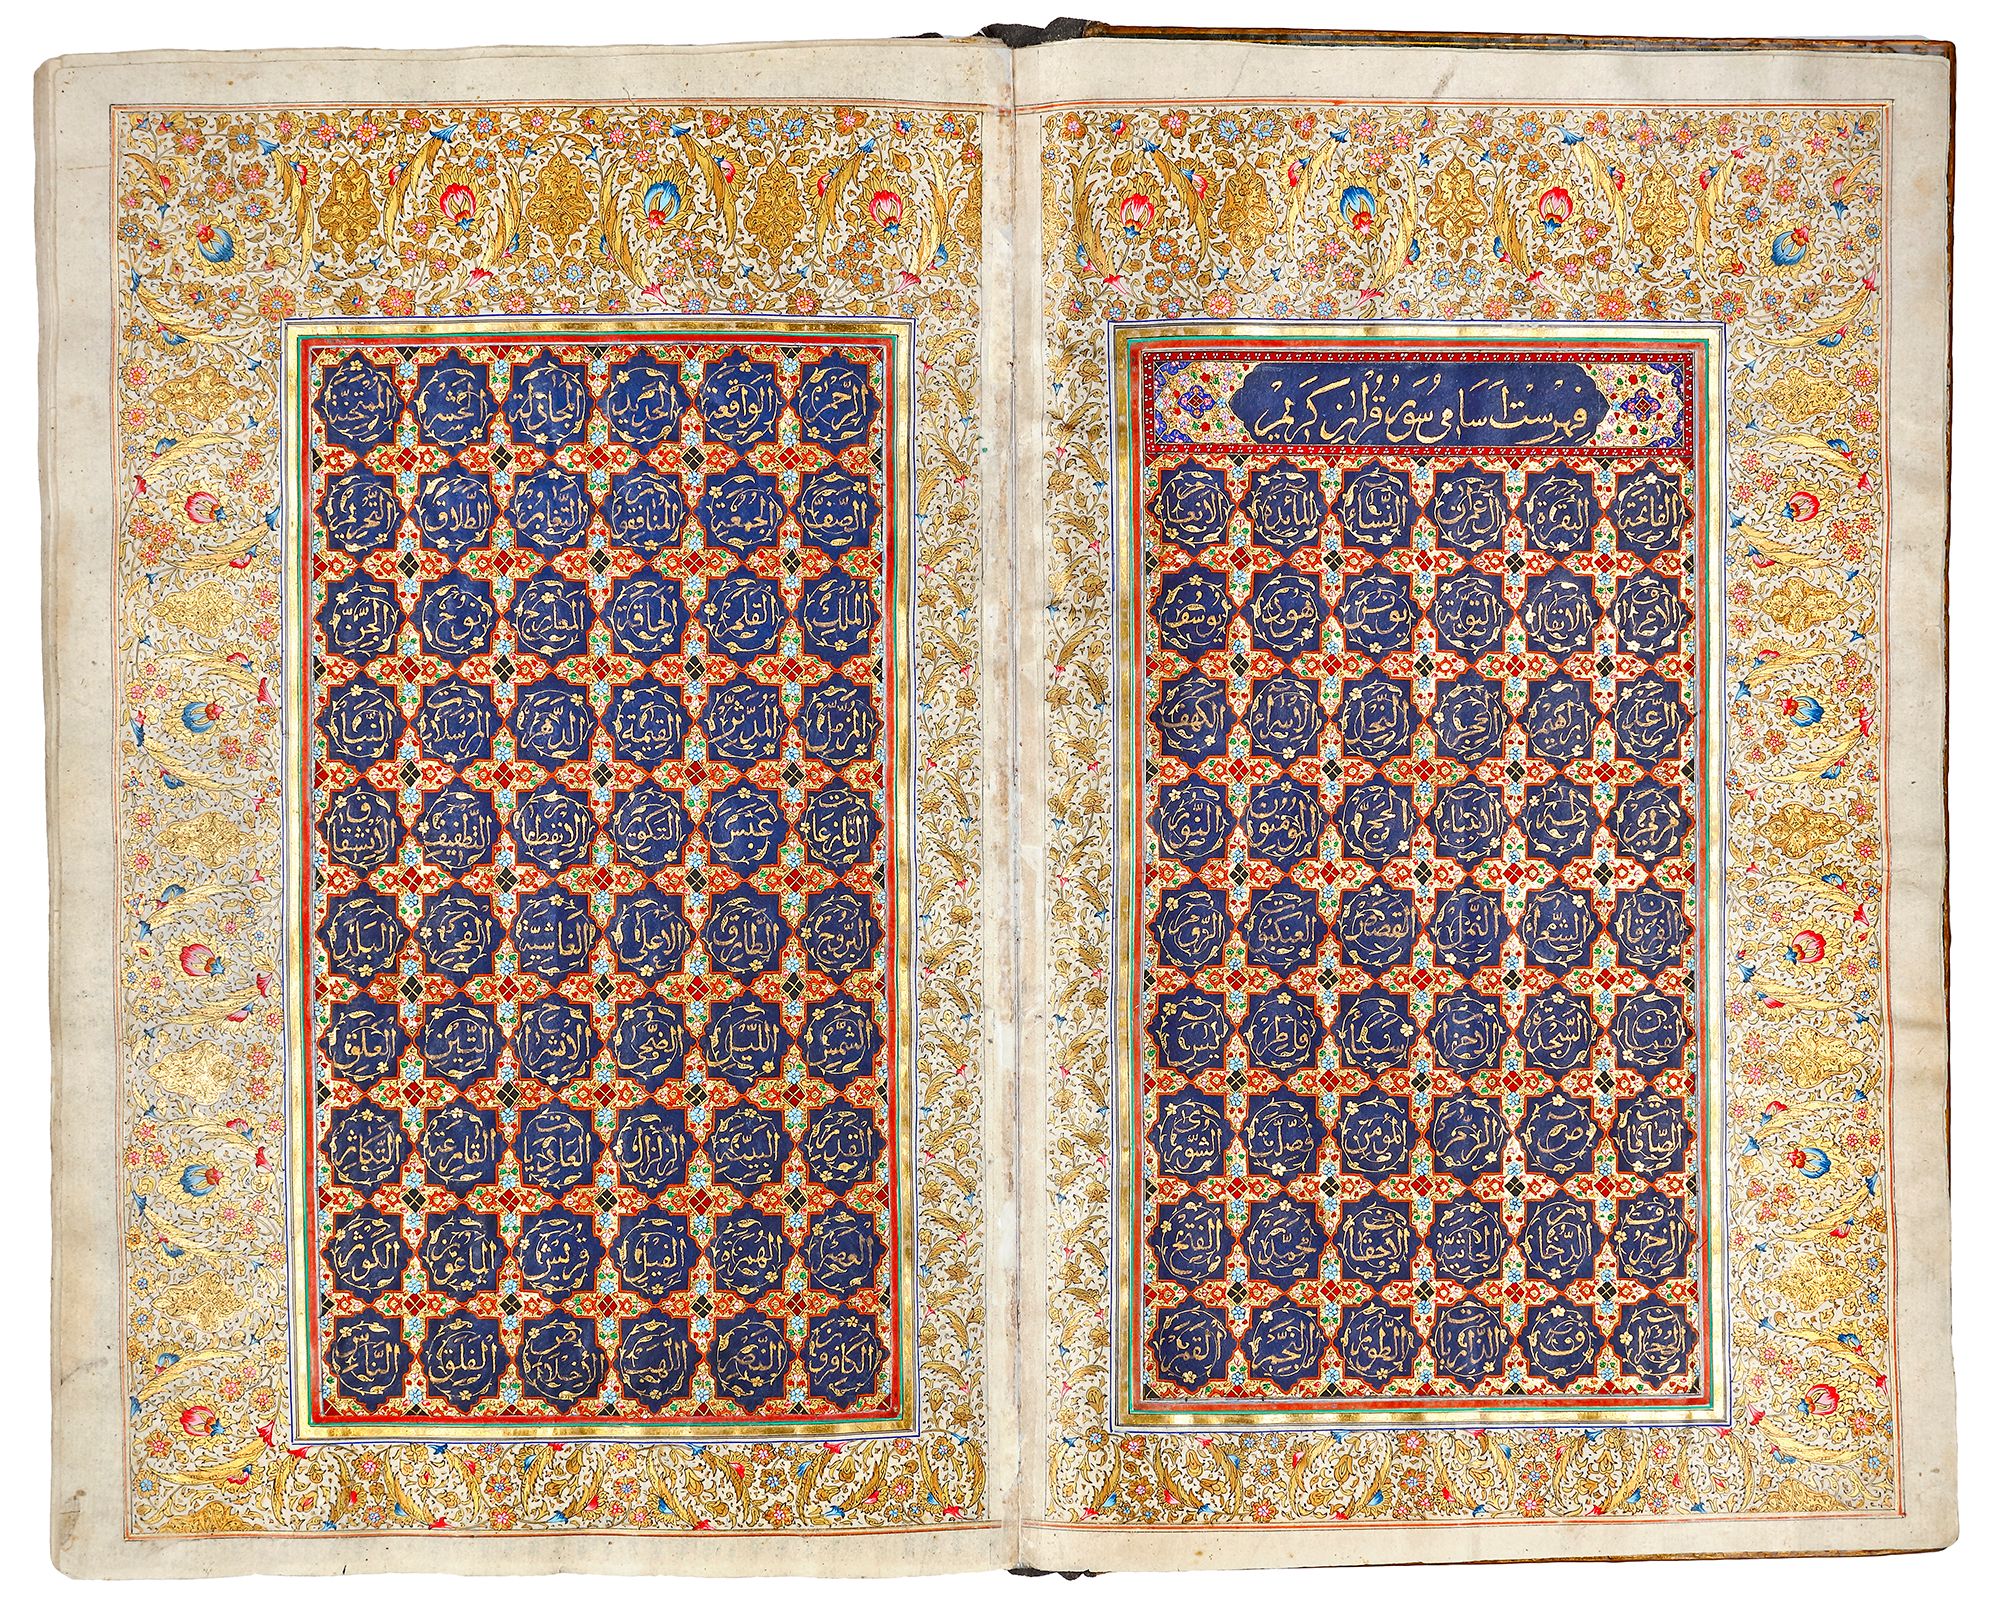 فهرست اسامی سور قران کریم
الفاتحة البقرة ال عمران النساء المائدة الانعام
الاعراف الانفال التوبة يونس هود يوسف
الرعد ابراهيم الحجر النحل الاسراء الكهف
مريم طه الانبياء الحج المؤمنون النور
الفرقان الشعراء النمل القصص العنكبوت الروم
لقمان السجدة الاحزاب سبأ فاطر يس
الصافات ص الزمر المؤمن فصلت الشورى
الزخرف الدخان الجاثية الاحقاف محمد الفتح
الحجرات ق الذاريات الطور النجم القمر
الرحمن الواقعة الحديد المجادلة الحشر الممتحنة
الصف الجمعة المنافقون التغابن الطلاق التحريم
الملك القلم الحاقة المعارج نوح الجن
المزمل المدثر القيمة الدهر المرسلات النبأ
النازعات عبس التكوير الانفطار التطفيف الانشقاق
البروج الطارق الاعلى الغاشية الفجر البلد
الشمس الليل الضحى الانشراح التين العلق
القدر البينة الزلزال العاديات القارعة التكاثر
العصر الهمزة الفيل قريش الماعون الكوثر
الكافرون النصر اللهب الاخلاص الفلق الناس